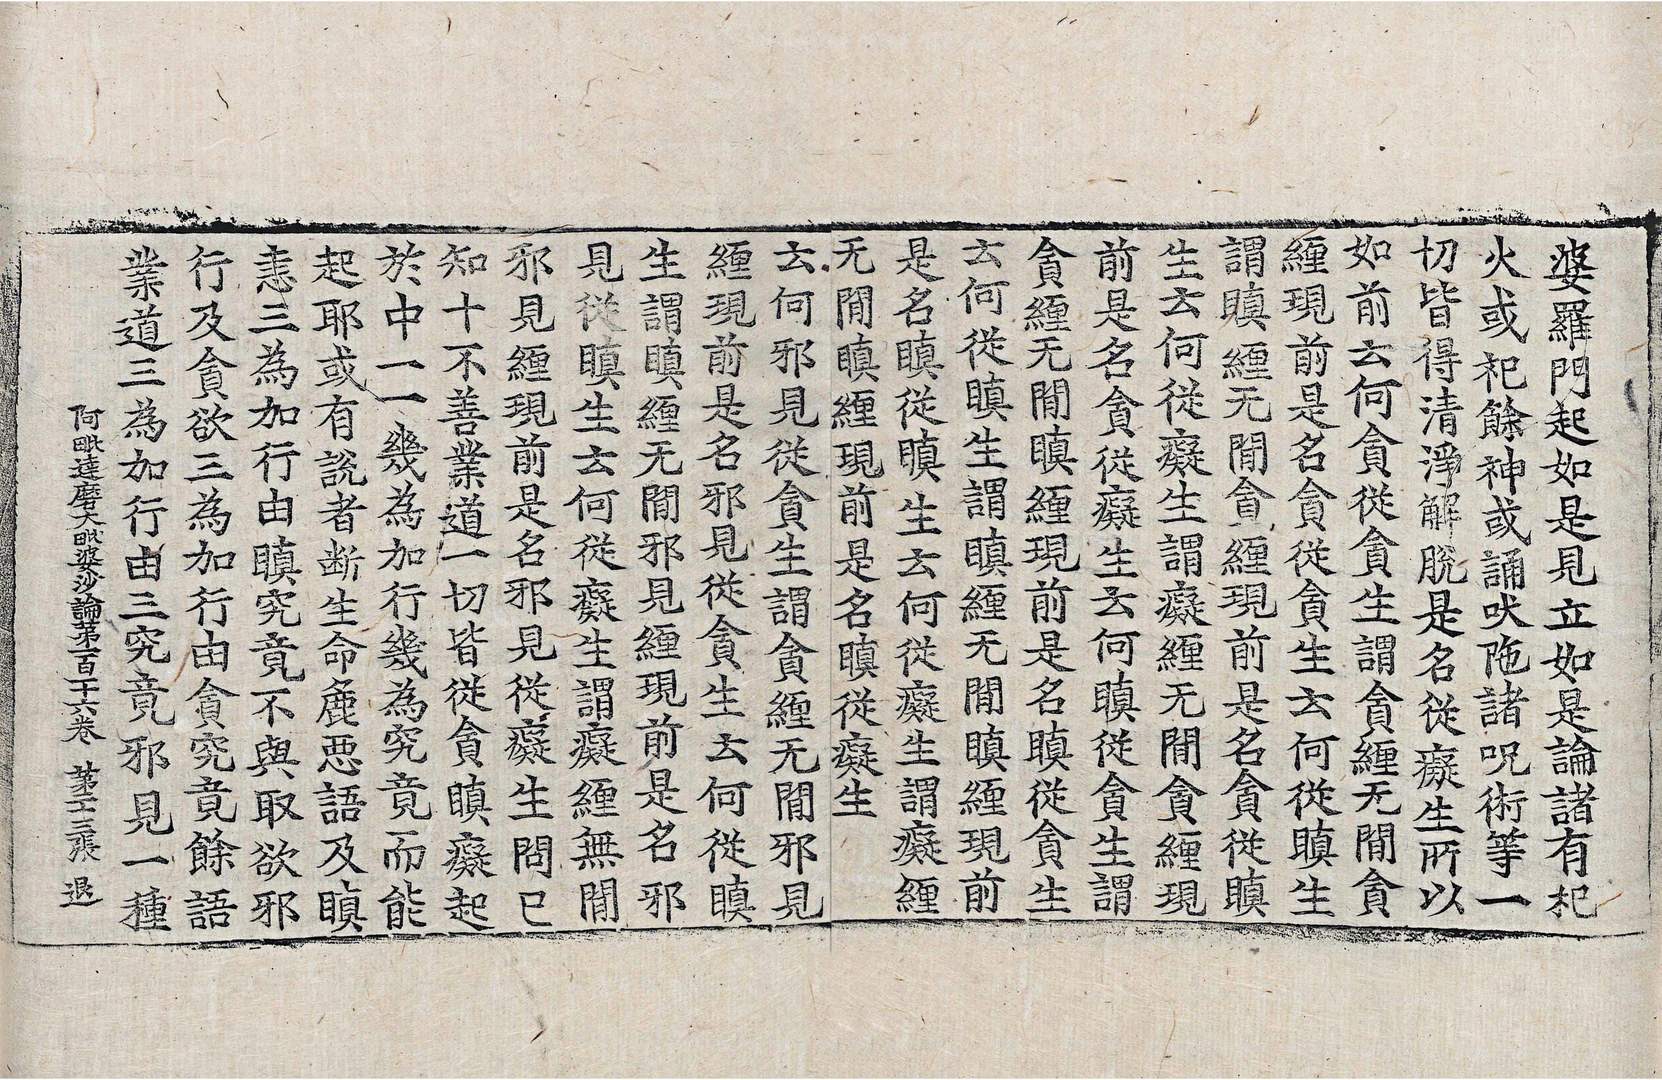 婆羅門起如是見立如是論諸有祀
火或祀餘神或誦吠陁諸呪術等一
切皆得清淨解脫是名從癡生所以
如前云何貪從貪生謂貪纏无閒貪
纏現前是名貪從貪生云何從瞋生
謂瞋纏无閒貪纏現前是名貪從瞋
生云何從癡生謂癡纏无閒貪纏現
前是名貪從癡生云何瞋從貪生謂
貪纏无閒瞋纏現前是名瞋從貪生
云何從瞋生謂瞋纏无閒瞋纏現前
是名瞋從瞋生云何從癡生謂癡纏
无閒瞋纏現前是名瞋從癡生
云何邪見從貪生謂貪纏无閒邪見
纏現前是名邪見從貪生云何從瞋
生謂瞋纏无閒邪見纏現前是名邪
見從瞋生云何從癡生謂癡纏無閒
邪見纏現前是名邪見從癡生問已
知十不善業道一切皆從貪瞋癡起
於中一一幾為加行幾為究竟而能
起耶或有說者断生命麁惡語及瞋
恚三為加行由瞋究竟不與取欲邪
行及貪欲三為加行由貪究竟餘語
業道三為加行由三究竟邪見一種
阿毗達磨大毗婆沙論第一百十六卷 第十三張 退